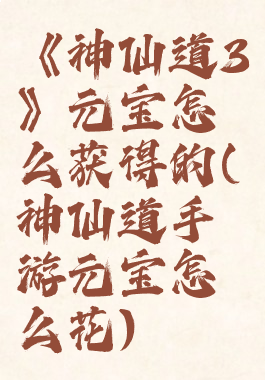 《神仙道3
》元宝怎
么获得的(
神仙道手
游元宝怎
么花)